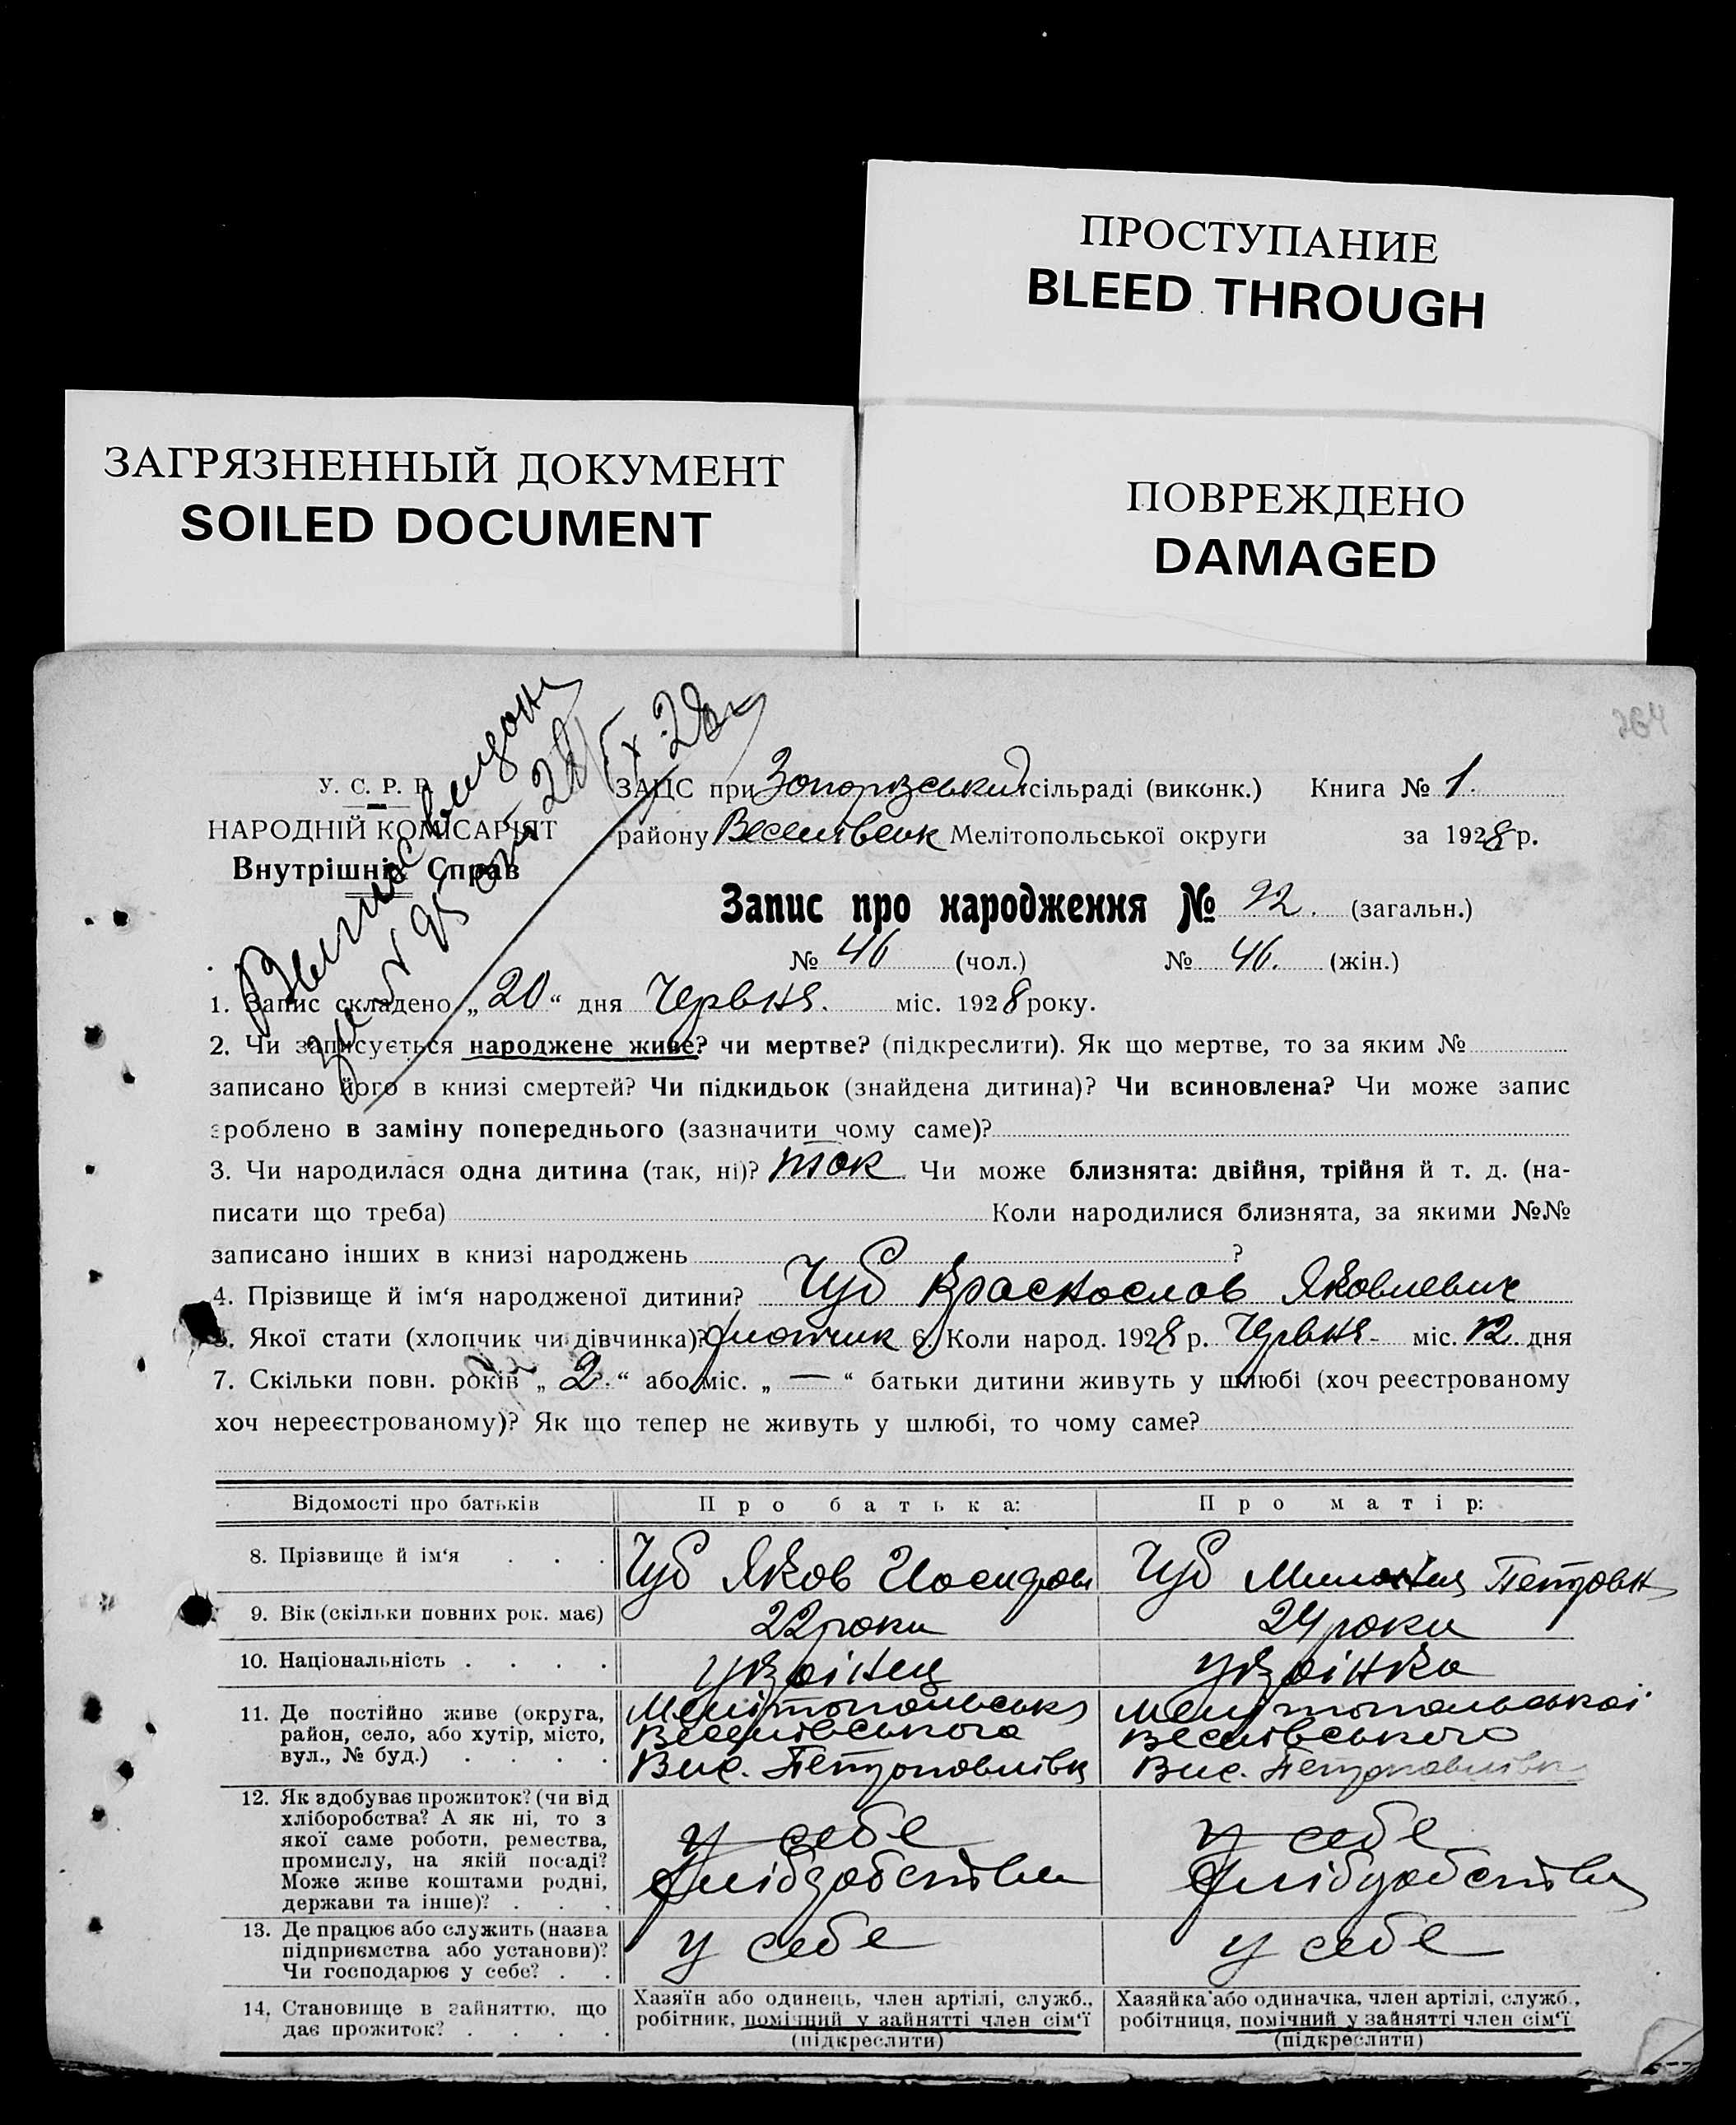 ПРОСТУПАНИЕ
BLEED THROUGH
ЗАГРЯЗНЕННЫЙ ДОКУМЕНТ
SOILED DOCUMENT
ПОВРЕЖДЕНО
DAMAGED
У. С. Р. Р.
НАРОДНІЙ КОМІСАРІЯТ
Внутрішніх Справ
ЗАЦС при сільраді (виконк.) Книга № 1.
району Мелітопольської округи за 1928 р.
Запис про народження № 92. (загальн.)
№ 46 (чол.) № 46. (жін.)
1. Запис складено „20“ дня Червня. міс. 1928 року.
2. Чи записується народжене живе? чи мертве? (підкреслити). Як що мертве, то за яким №
записано його в книзі смертей? Чи підкидьок (знайдена дитина)? Чи всиновлена? Чи може запис
зроблено в заміну попереднього (зазначити чому саме)?
3. Чи народилася одна дитина (так, ні)? так Чи може близнята: двійня, трійня й т. д. (на-
писати що треба) Коли народилися близнята, за якими №№
записано інших в книзі народжень ?
4. Прізвище й ім‘я народженої дитини? Чуб Яковлевич
5. Якої стати (хлопчик чи дівчинка)? хлопчик 6. Коли народ. 1928 р. Червня міс. 12 дня
7. Скільки повн. років „2.“ або міс. „—“ батьки дитини живуть у шлюбі (хоч реєстрованому
хоч нереєстрованому)? Як що тепер не живуть у шлюбі, то чому саме?
Відомості про батьків Про батька: Про матір:
8. Прізвище й ім‘я . . . Чуб Яков Чуб
9. Вік (скільки повних рок. має) 22 роки 24 роки
10. Національність . . . . українец українка
11. Де постійно живе (округа, район, село, або хутір, місто, вул., № буд.) . . . .
Веселівського
Вис. Петропавлівка
Мелітопольської
Веселівського
Вис. Петропавлівка
12. Як здобуває прожиток? (чи від хліборобства? А як ні, то з якої саме роботи, ремества, промислу, на якій посаді? Може живе коштами родні, держави та інше)? . . .
у себе
у себе
13. Де працює або служить (назва підприємства або установи)? Чи господарює у себе? . .
у себе
у себе
14. Становище в зайняттю, що дає прожиток? . . . .
Хазяїн або одинець, член артілі, служб., робітник, помічний у зайнятті член сім‘ї (підкреслити)
Хазяйка або одиначка, член артілі, служб., робітниця, помічний у зайнятті член сім‘ї (підкреслити)